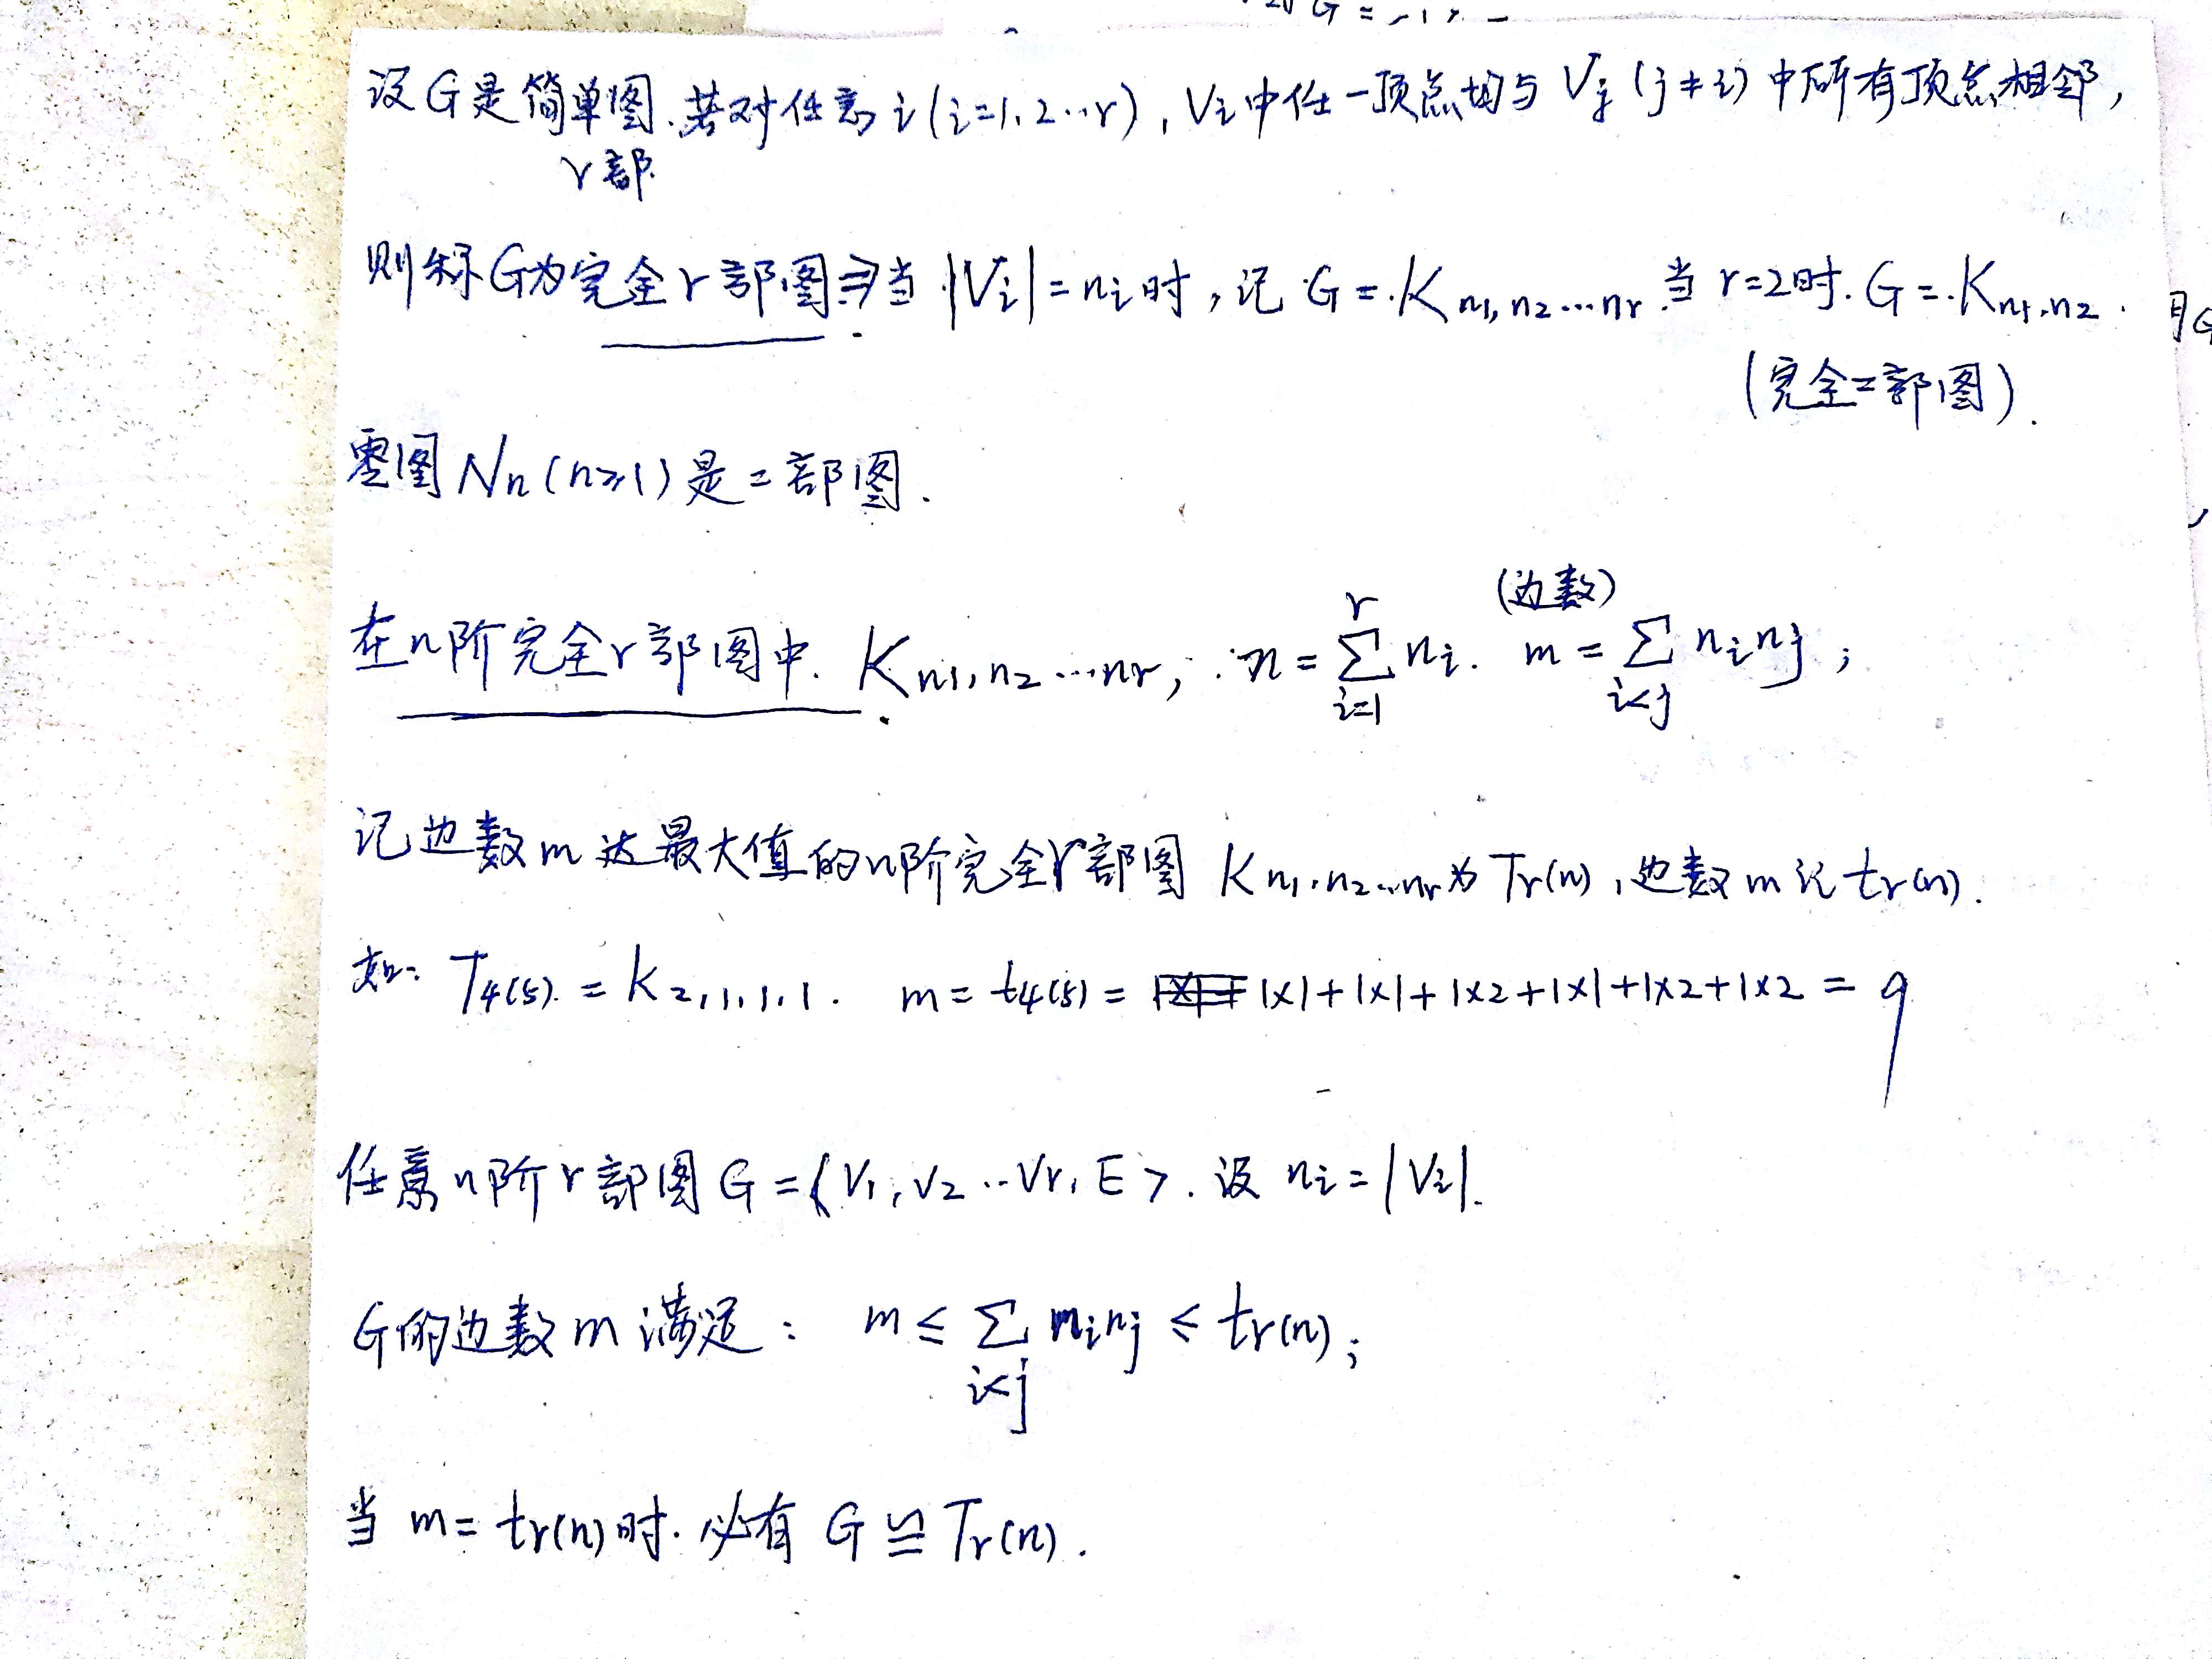 设G是简单图.若对任意i(i=1,2…r),Vi中任一顶点均与Vj(j≠i)中所有顶点相邻,
r部.
则称G为完全r部图.当|Vi|=ni时,记G=Kn1,n2…nr.当r=2时.G=Kn1,n2.
(完全二部图).
零图Nn(n≥1)是二部图.
(边数)
在n阶完全r部图中.Kn1,n2…nr; n=∑_{i=1}^{r} ni. m=∑_{i<j} ninj;
记边数m达最大值的n阶完全r部图Kn1,n2…nr为Tr(n),边数m记tr(n).
如:T4(5).=K2,1,1,1. m=t4(5)=1×1+1×1+1×2+1×1+1×2+1×2=9
任意n阶r部图G=<V1,V2…Vr,E>.设ni=|Vi|.
G的边数m满足: m≤∑_{i<j} ninj≤tr(n);
当m=tr(n)时.必有G≌Tr(n).